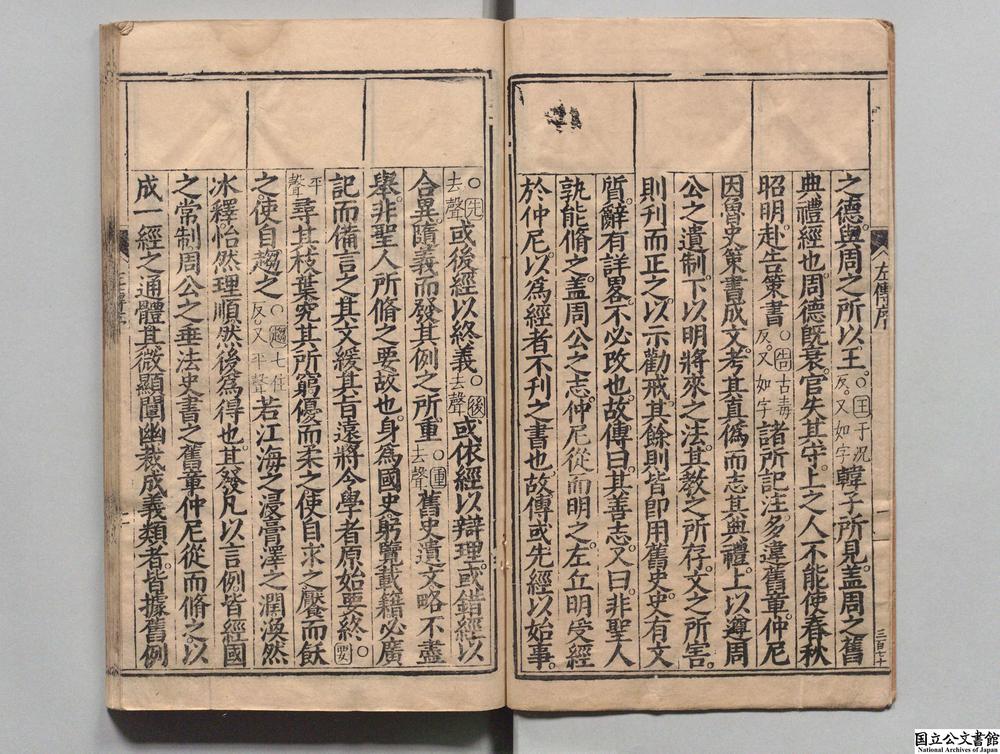 之德與周之所以王○王于況反。又如字韓子所見。蓋周之舊
典禮經也。周德既衰。官失其守。上之人不能使春秋
昭明。赴告策書○告古毒反。又如字諸所記注。多違舊章。仲尼
因魯史策書成文。考其真僞。而志其典禮。上以遵周
公之遺制。下以明將來之法。其教之所存。文之所害。
則刊而正之。以示勸戒。其餘則皆即用舊史。史有文
質。辭有詳畧。不必改也。故傳曰。其善志。又曰。非聖人
孰能脩之。蓋周公之志。仲尼從而明之。左丘明受經
於仲尼。以爲經者不刊之書也。故傳或先經以始事。
左傳序
一
三百七十
○先去聲或後經以終義○後去聲或依經以辯理。或錯經以
合異。隨義而發。其例之所重○重去聲舊史遺文略不盡
舉。非聖人所脩之要故也。身爲國史。躬覽載籍。必廣
記而備言之。其文緩。其旨遠。將令學者原始要終○要
平聲尋其枝葉。究其所窮。優而柔之。使自求之。饜而飫
之。使自趨之○趨七住反。又平聲若江海之浸。膏澤之潤。渙然
冰釋。怡然理順。然後爲得也。其發凡以言例。皆經國
之常制。周公之垂法。史書之舊章。仲尼從而脩之。以
成一經之通體。其微顯闡幽。裁成義類者。皆據舊例
国立公文書館
National Archives of Japan